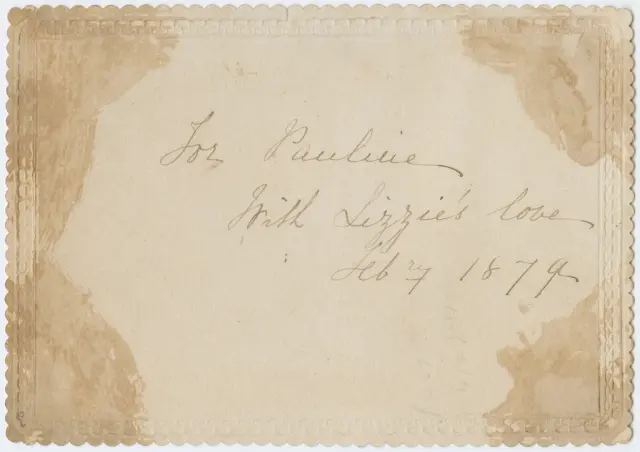 For Pauline
With Lizzie's love
Feb'y 1879